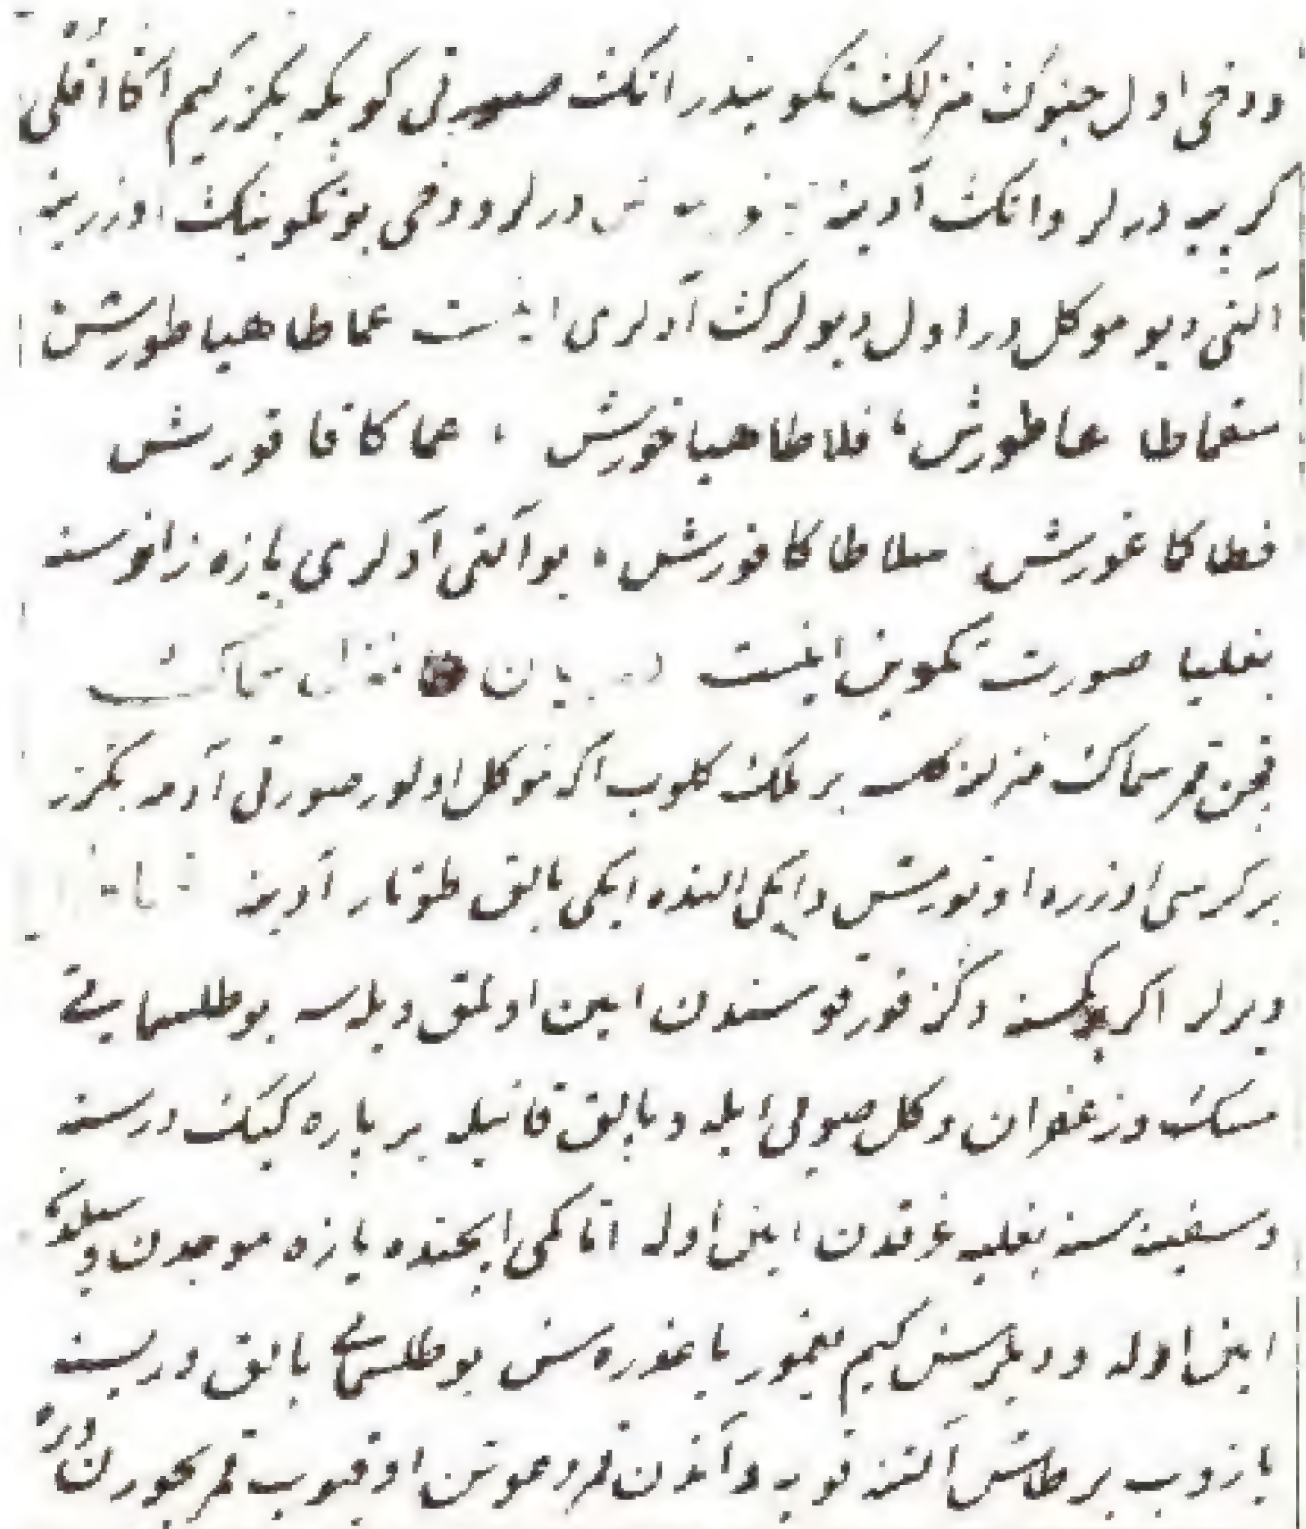 ودخی اول جنوك منزلك تكوينيدر انك صورتی كوبكه بكزر كیم اكا اقلی
كريبه درلر وانك آدينه درلر ودخی بو تكوينك اوزرينه
آلتی ديو موكل در اول ديولرك آدلری عماطاهياطورش
سقماطا عاطورش فلاطاهياغورش ، عماكافا قورش
فطاكا غورش ملاطاكا فورش ، بو آلتی آدلری يازه زانوسنه
بغليا صورت تكوين
چن قمر سماك منزلنه كلسه بر ملك كلوب اكا موكل اولور صورتی آدمه بكزر
بر كرسی اوزره اوتورمش وايكی النده ايكی بالق طوتار آدينه
ديرلر اكر بر كمسنه دكز قورقوسندن امين اولمق ديلسه بو طلسمايی
مسك وزعفران وكل صويی ايله وبالق قانيله بر پاره كيك درسنه
وسفينه سنه بغليه غرقدن امين اوله اتا كمی ايچنده يازه موجدن
امين اوله وديلرسن كيم يغمور ياغدره سن بو طلسمايی بالق دريسنه
يازوب بر طاش آلتنه قويه واندن قمر دعوتن اوقيوب قمر بخورن